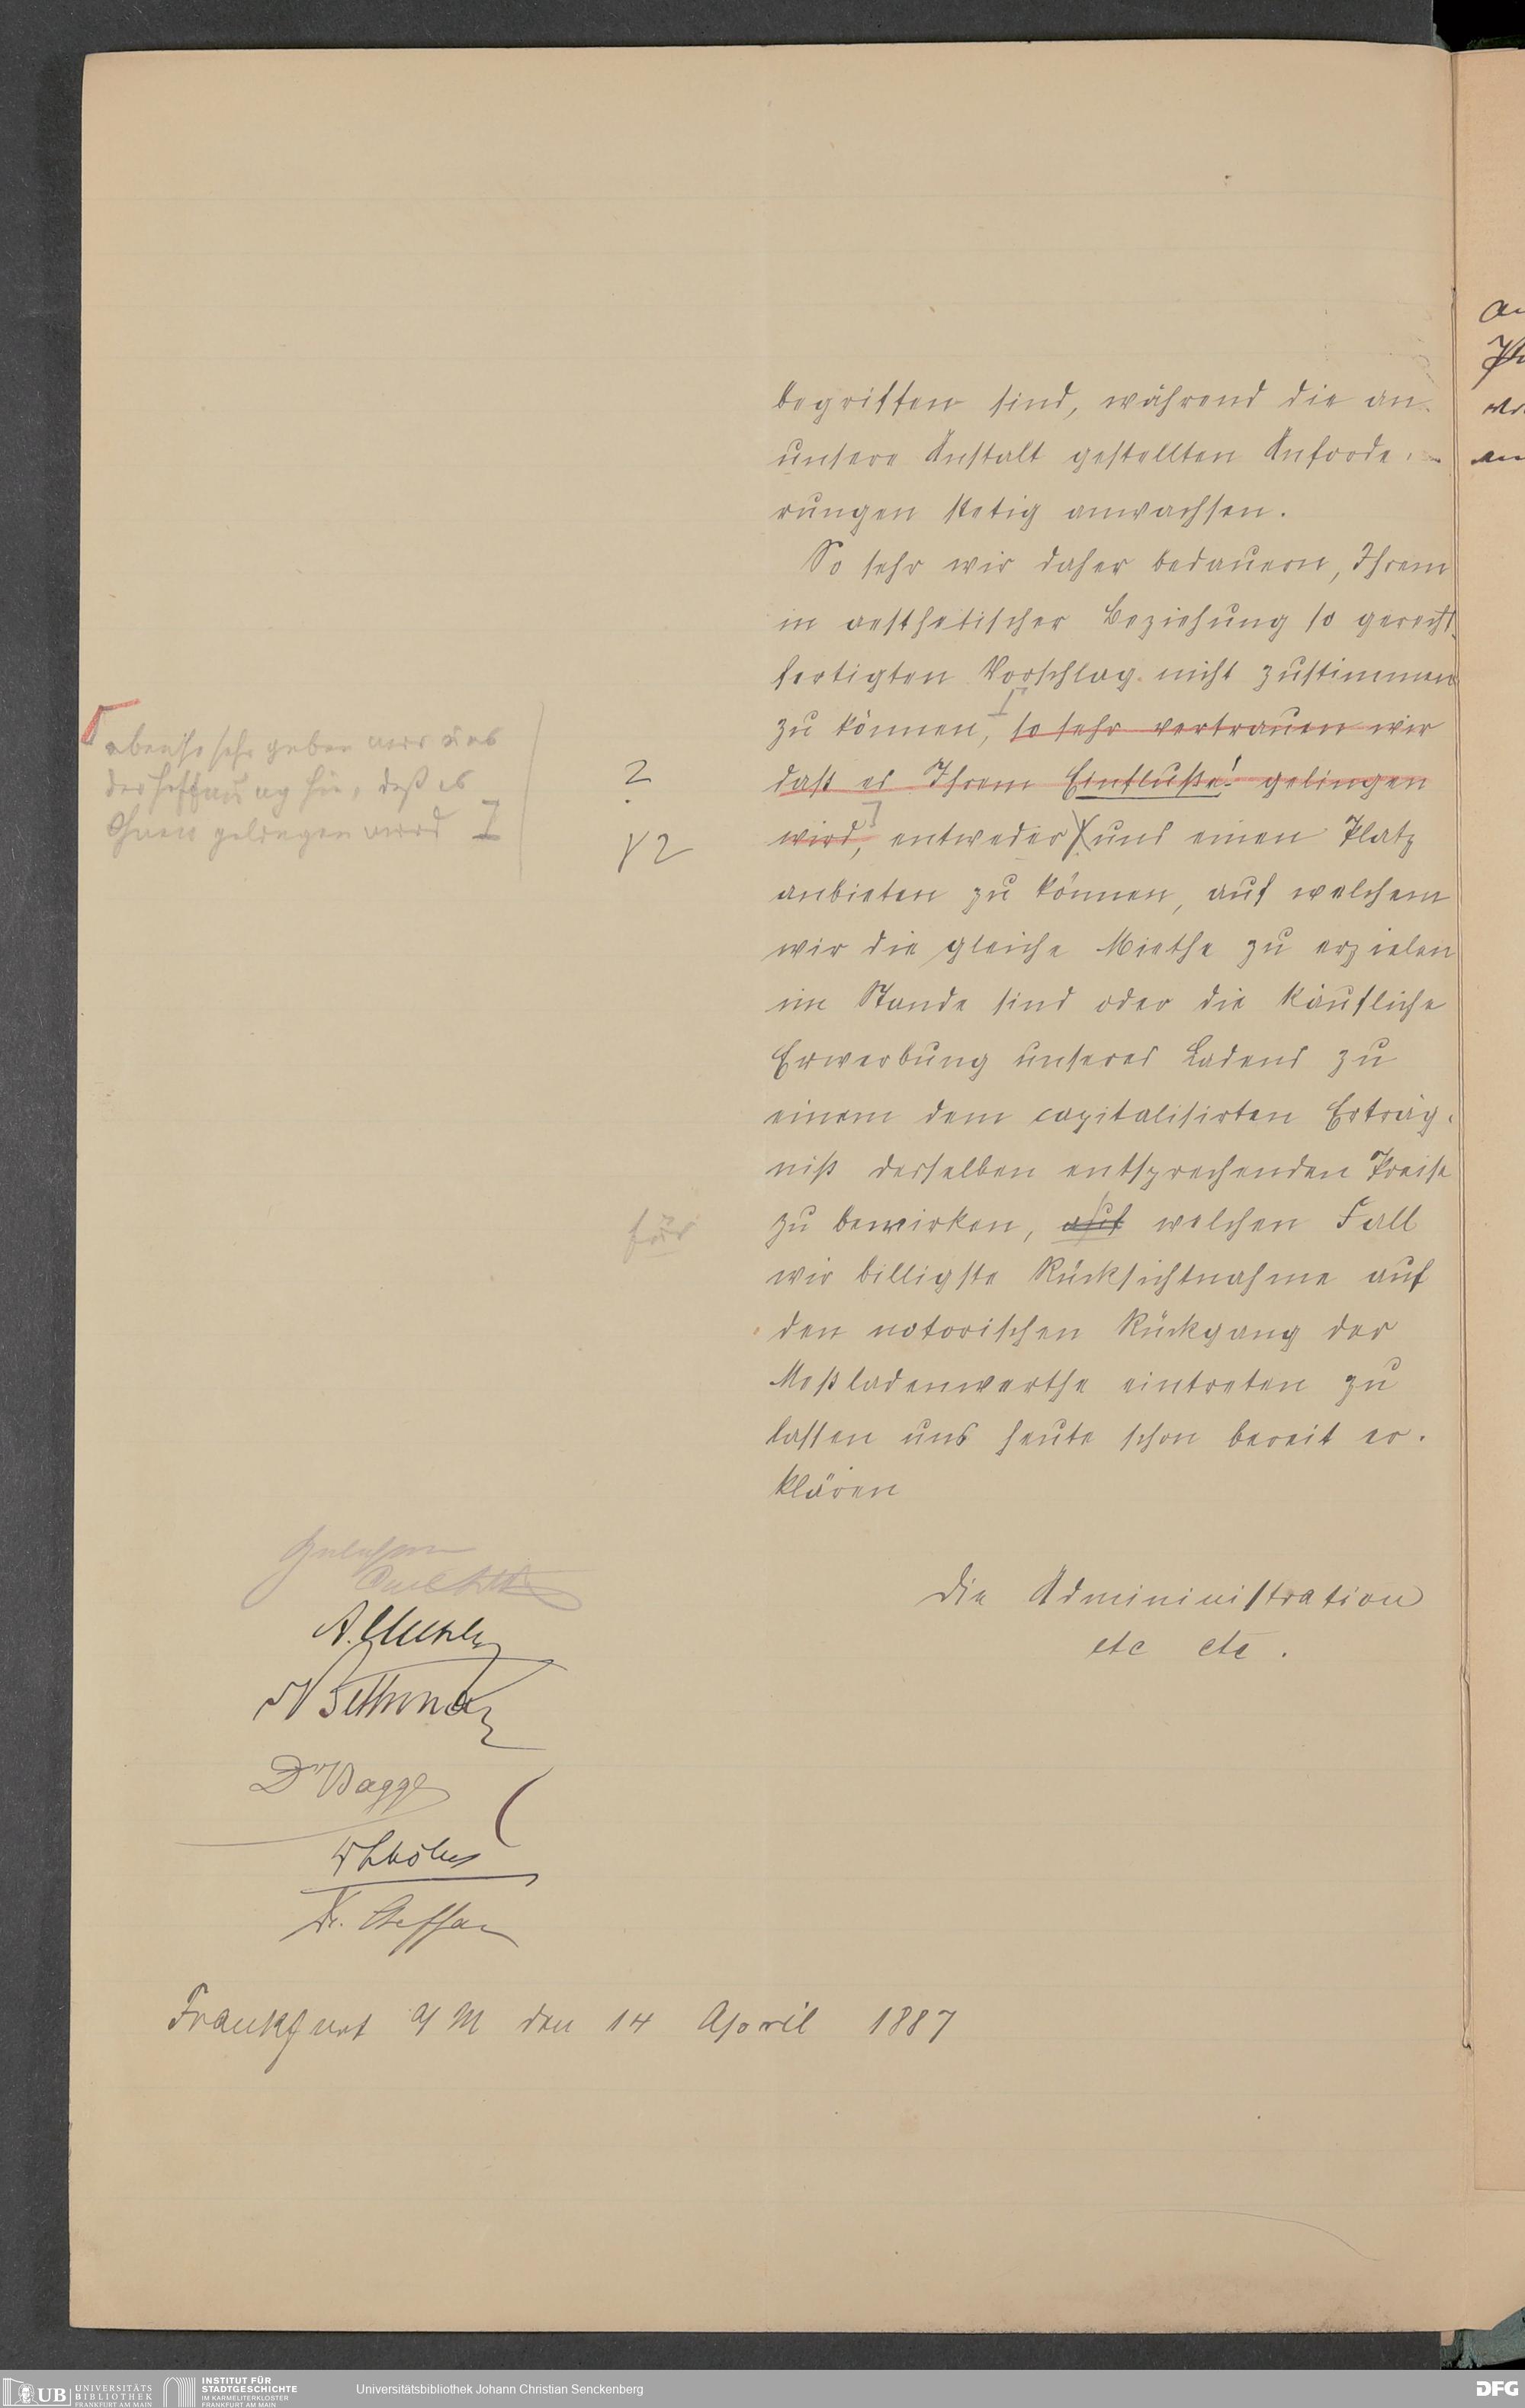 begriffen sind, während die an
unsere Anstalt gestellten Anforde-
rungen stetig anwachsen.
So sehr wir daher bedauern, Ihrem
in aesthetischer Beziehung so gerecht-
fertigten Vorschlag nicht zustimmen
zu können, so sehr vertrauen wir
daß es Ihrem Einfluße! gelingen
wird, entweder uns einen Platz
anbieten zu können, auf welchem
wir die gleiche Miethe zu erzielen
im Stande sind oder die käufliche
Erwerbung unseres Ladens zu
einem dem capitalisirten Erträg-
niß desselben entsprechenden Preise
zu bewirken, auf welchen Fall
wir billigste Rücksichtnahme auf
den notorischen Rückgang der
Meßladenwerthe eintreten zu
lassen uns heute schon bereit er-
klären
Die Admininistration
etc etc.
ebenso sehr geben wir uns
der Hoffnung hin, daß es
Ihnen gelingen wird
?
für
Gelesen
Dr Bagge
Dr. Steffan
Frankfurt a/M den 14 April 1887
UB UNIVERSITÄTS
BIBLIOTHEK
FRANKFURT AM MAIN
INSTITUT FÜR
STADTGESCHICHTE
IM KARMELITERKLOSTER
FRANKFURT AM MAIN
Universitätsbibliothek Johann Christian Senckenberg
DFG